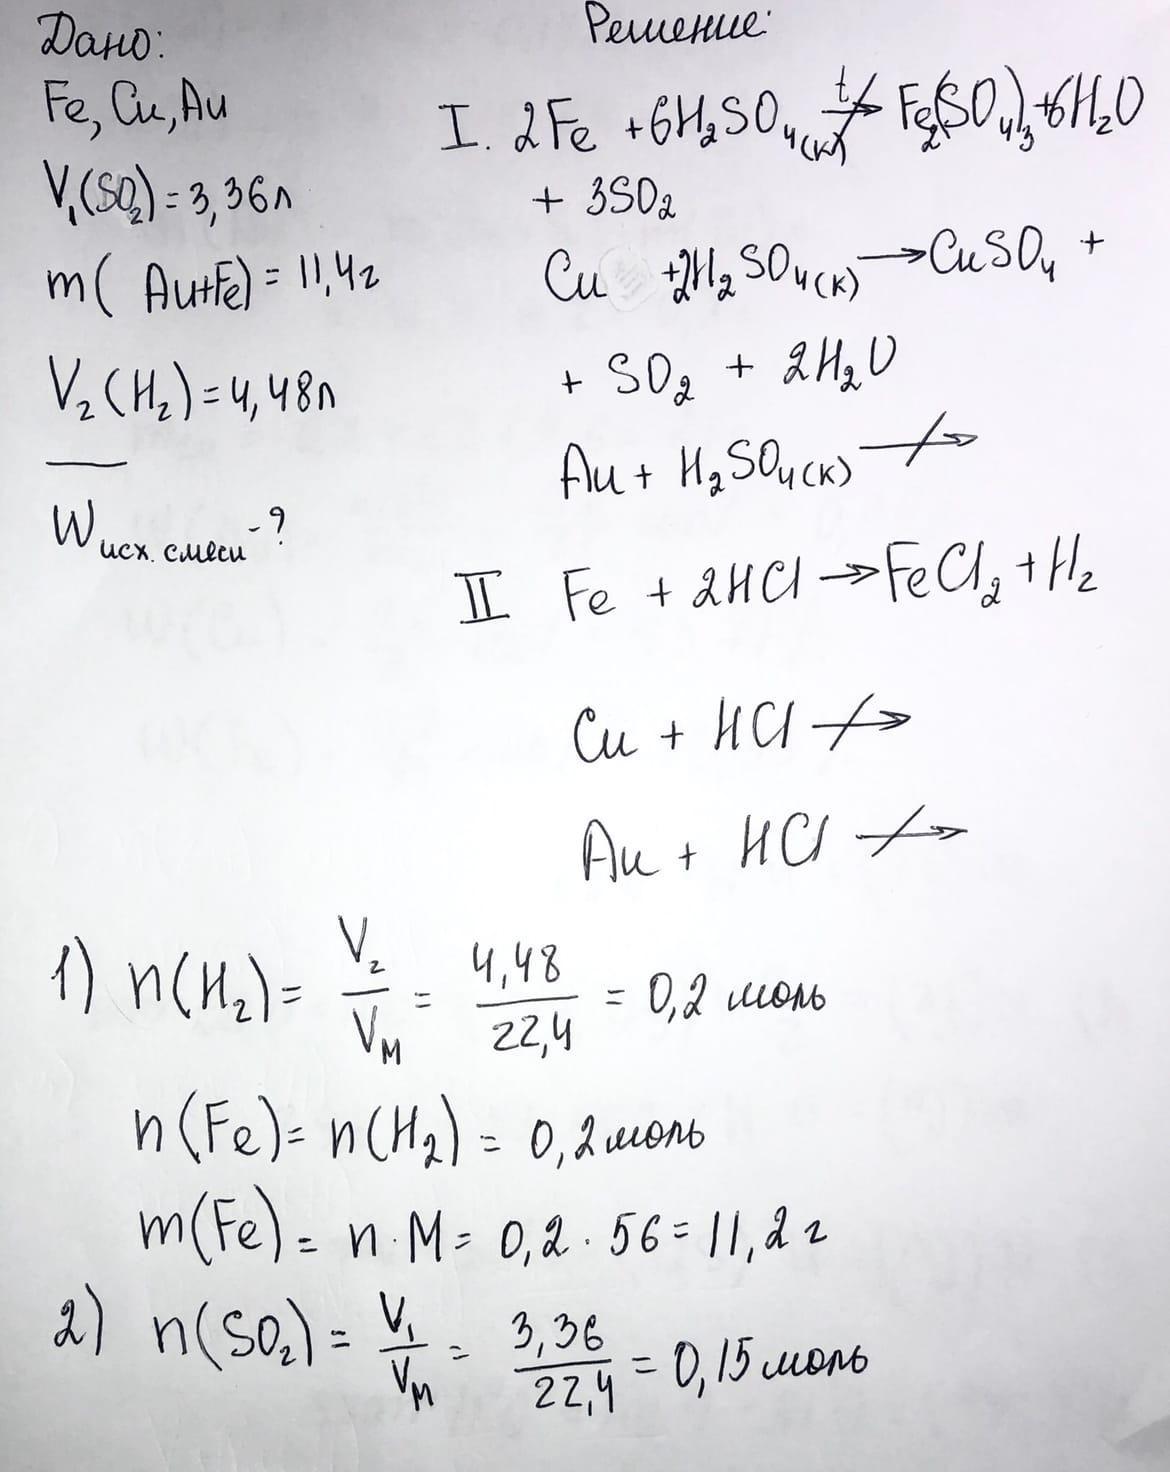 Дано:
Fe, Cu, Au
V₁(SO₂) = 3,36л
m( Au+Fe) = 11,4г
V₂(H₂) = 4,48л
W исх. смеси - ?
Решение:
I. 2Fe + 6H₂SO₄(к) t↛ Fe₂(SO₄)₃ + 6H₂O
+ 3SO₂
Cu + 2H₂SO₄(к) → CuSO₄ +
+ SO₂ + 2H₂O
Au + H₂SO₄(к) ↛
II Fe + 2HCl → FeCl₂ + H₂
Cu + HCl ↛
Au + HCl ↛
1) n(H₂) = V₂/Vм = 4,48/22,4 = 0,2 моль
n(Fe) = n(H₂) = 0,2 моль
m(Fe) = n · M = 0,2 · 56 = 11,2 г
2) n(SO₂) = V₁/Vм = 3,36/22,4 = 0,15 моль